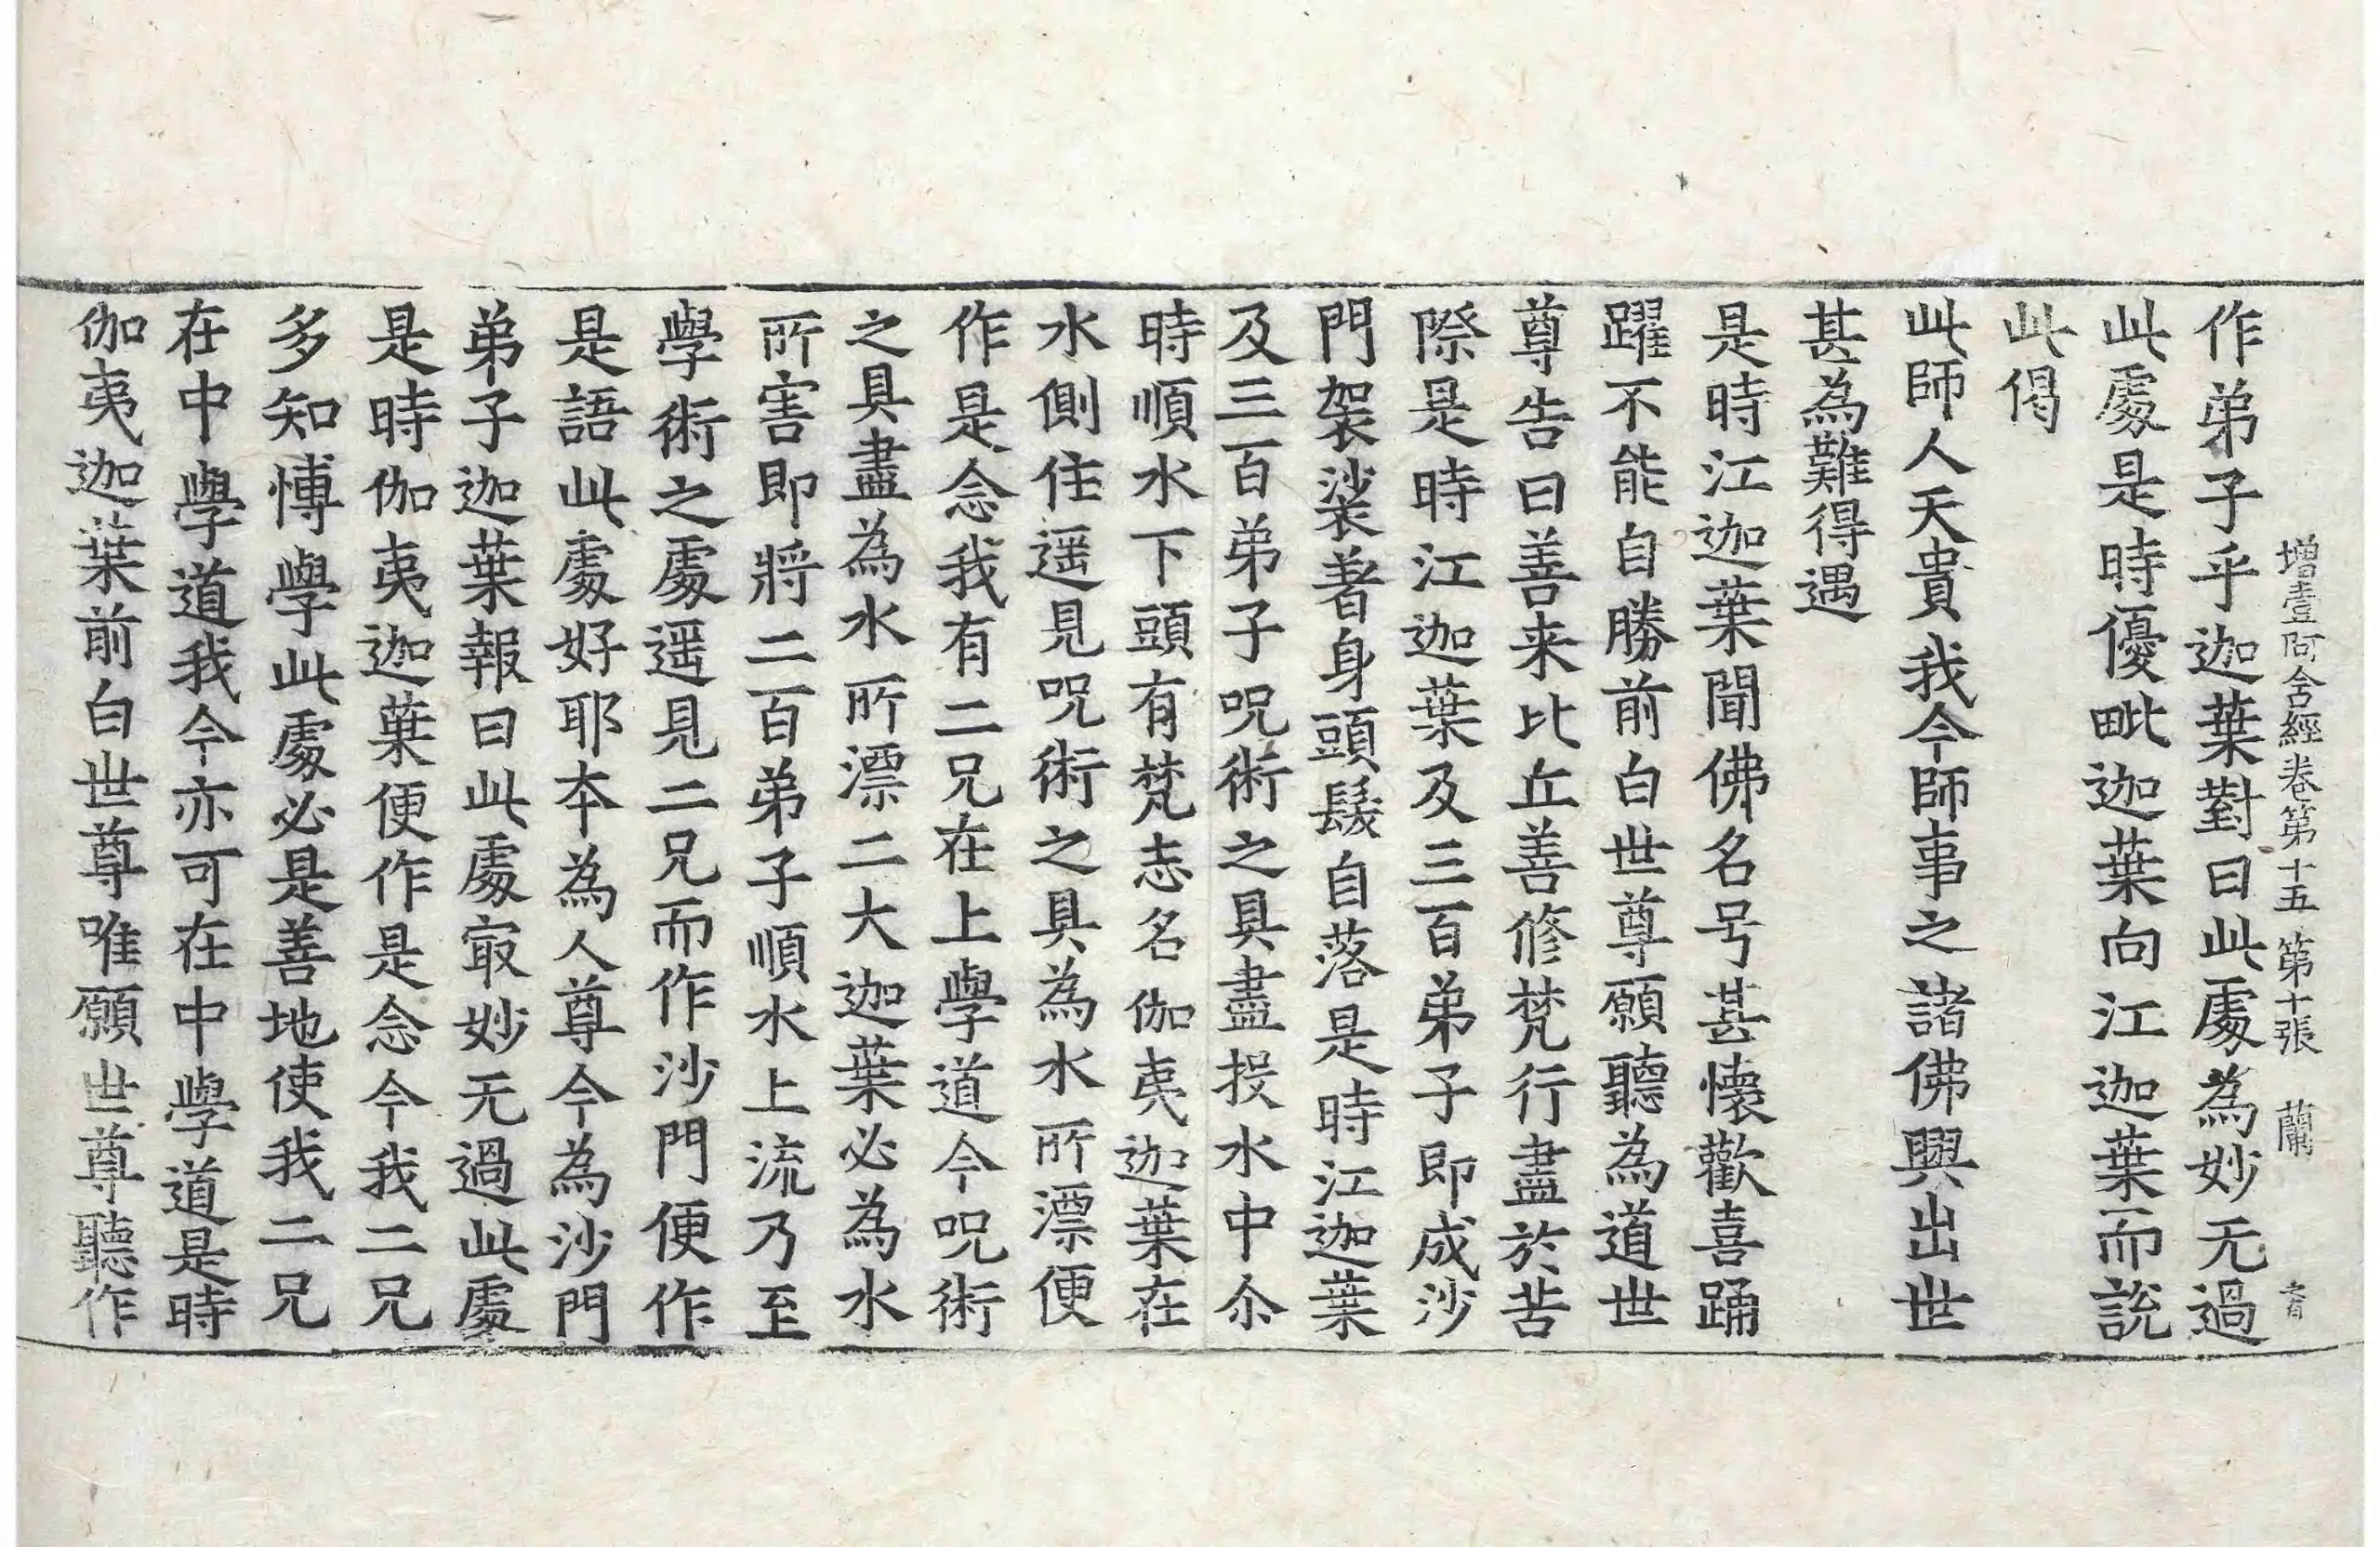 增壹阿含經卷第十五 第十張 蘭
作弟子乎迦葉對曰此處為妙无過
此處是時優毗迦葉向江迦葉而說
此偈
此師人天貴我今師事之諸佛興出世
甚為難得遇
是時江迦葉聞佛名号甚懷歡喜踊
躍不能自勝前白世尊願聽為道世
尊告曰善来比丘善修梵行盡於苦
際是時江迦葉及三百弟子即成沙
門袈裟著身頭髮自落是時江迦葉
及三百弟子呪術之具盡投水中尒
時順水下頭有梵志名伽夷迦葉在
水側住遥見呪術之具為水所漂便
作是念我有二兄在上學道今呪術
之具盡為水所漂二大迦葉必為水
所害即將二百弟子順水上流乃至
學術之處遥見二兄而作沙門便作
是語此處好耶本為人尊今為沙門
弟子迦葉報曰此處㝡妙无過此處
是時伽夷迦葉便作是念今我二兄
多知博學此處必是善地使我二兄
在中學道我今亦可在中學道是時
伽夷迦葉前白世尊唯願世尊聽作